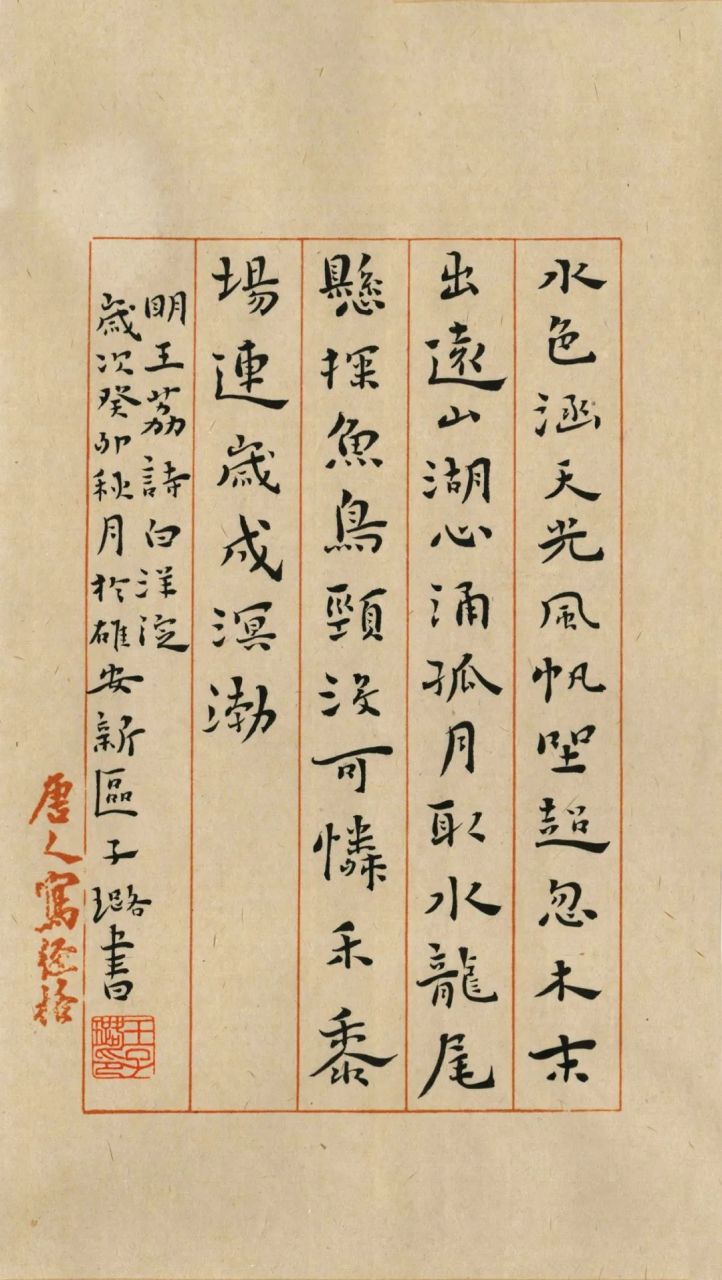 水色涵天光風帆坐超忽木末
出遠山湖心涌孤月取水龍尾
懸探魚鳥頸没可憐禾黍
場連歲成溟渤
明王荔詩白洋淀
歲次癸卯秋月於雄安新區子璐書
唐人寫經格
王子璐印